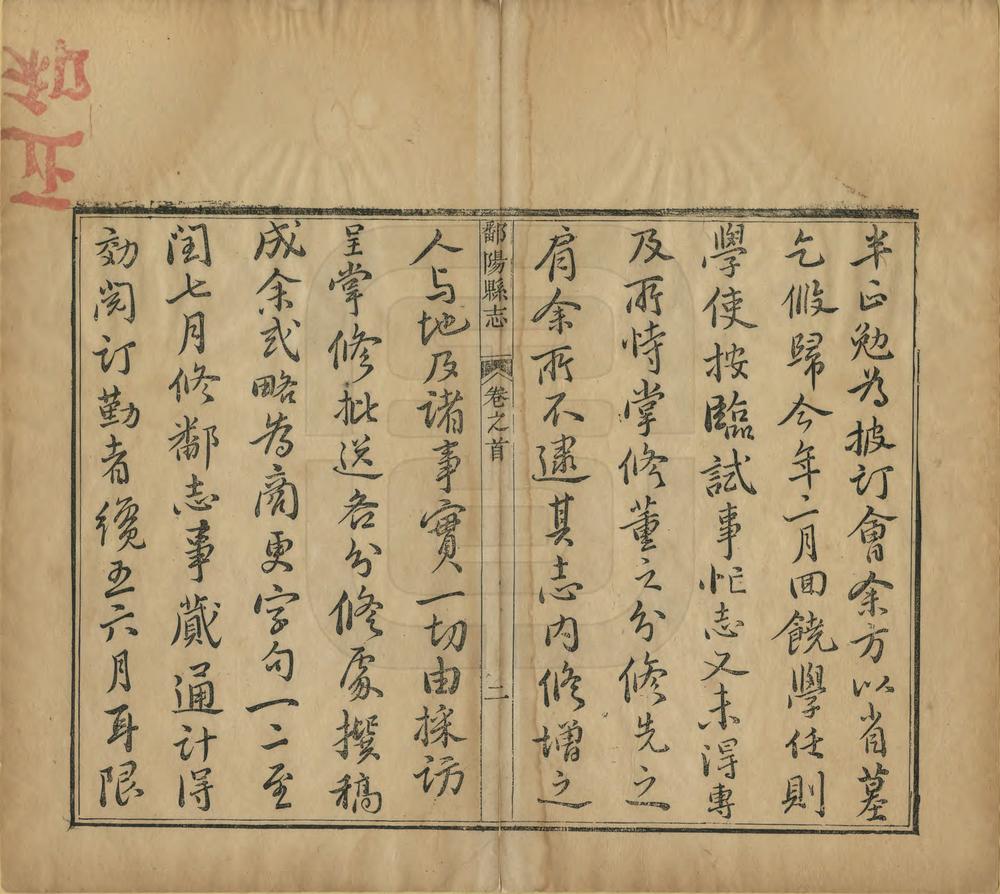 半正勉為披訂會余方以省墓
乞假歸今年二月回饒學任則
學使按臨試事忙志又未得專
及所恃掌修董之分修先之
肩余所不逮其志內修增之
鄱陽縣志 卷之首 二
人与地及諸事實一切由採訪
呈掌修批送各分修處撰稿
成余或略為商更字句一二至
閏七月修鄱志事蕆通計得
効閱訂勤者纔五六月耳限